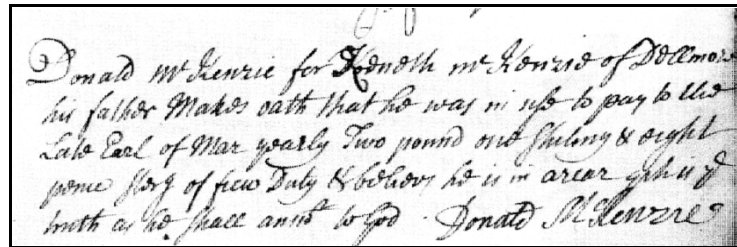 Donald mcKenzie for Keneth mcKenzie of Dellmore
his father Makes oath that he was in use to pay to the
Late Earl of Mar yearly Two pound one shiling & eight
pence sterg of few Duty & believs he is in arear qch is ye
truth as he shall ansr to God Donald McKenzie